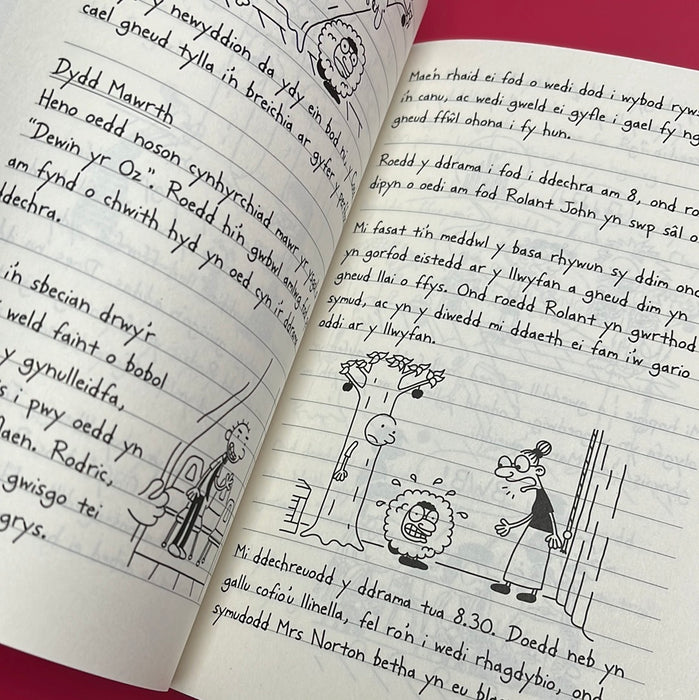 newyddion da ydy ein bod ni'n
cael gneud tylla i'n breichia ar gyfer y
Dydd Mawrth
Heno oedd noson cynhyrchiad mawr yr
"Dewin yr Oz". Roedd hi'n gwbwl amlwg
am fynd o chwith hyd yn oed cyn i'r
ddechra.
i'n sbecian drwy'r
weld faint o bobol
y gynulleidfa,
i pwy oedd yn
flaen. Rodric,
gwisgo tei
grys.
Mae'n rhaid ei fod o wedi dod i wybod
i'n canu, ac wedi gweld ei gyfle i gael fy
gneud ffŵl ohona i fy hun.
Roedd y ddrama i fod i ddechra am 8, ond
dipyn o oedi am fod Rolant John yn swp sâl o
Mi fasat ti'n meddwl y basa rhywun sy ddim ond
yn gorfod eistedd ar y llwyfan a gneud dim yn
gneud llai o ffys. Ond roedd Rolant yn gwrthod
symud, ac yn y diwedd mi ddaeth ei fam i'w gario
oddi ar y llwyfan.
Mi ddechreuodd y ddrama tua 8.30. Doedd neb yn
gallu cofio'u llinella, fel ro'n i wedi rhagdybio, ond
symudodd Mrs Norton betha yn eu